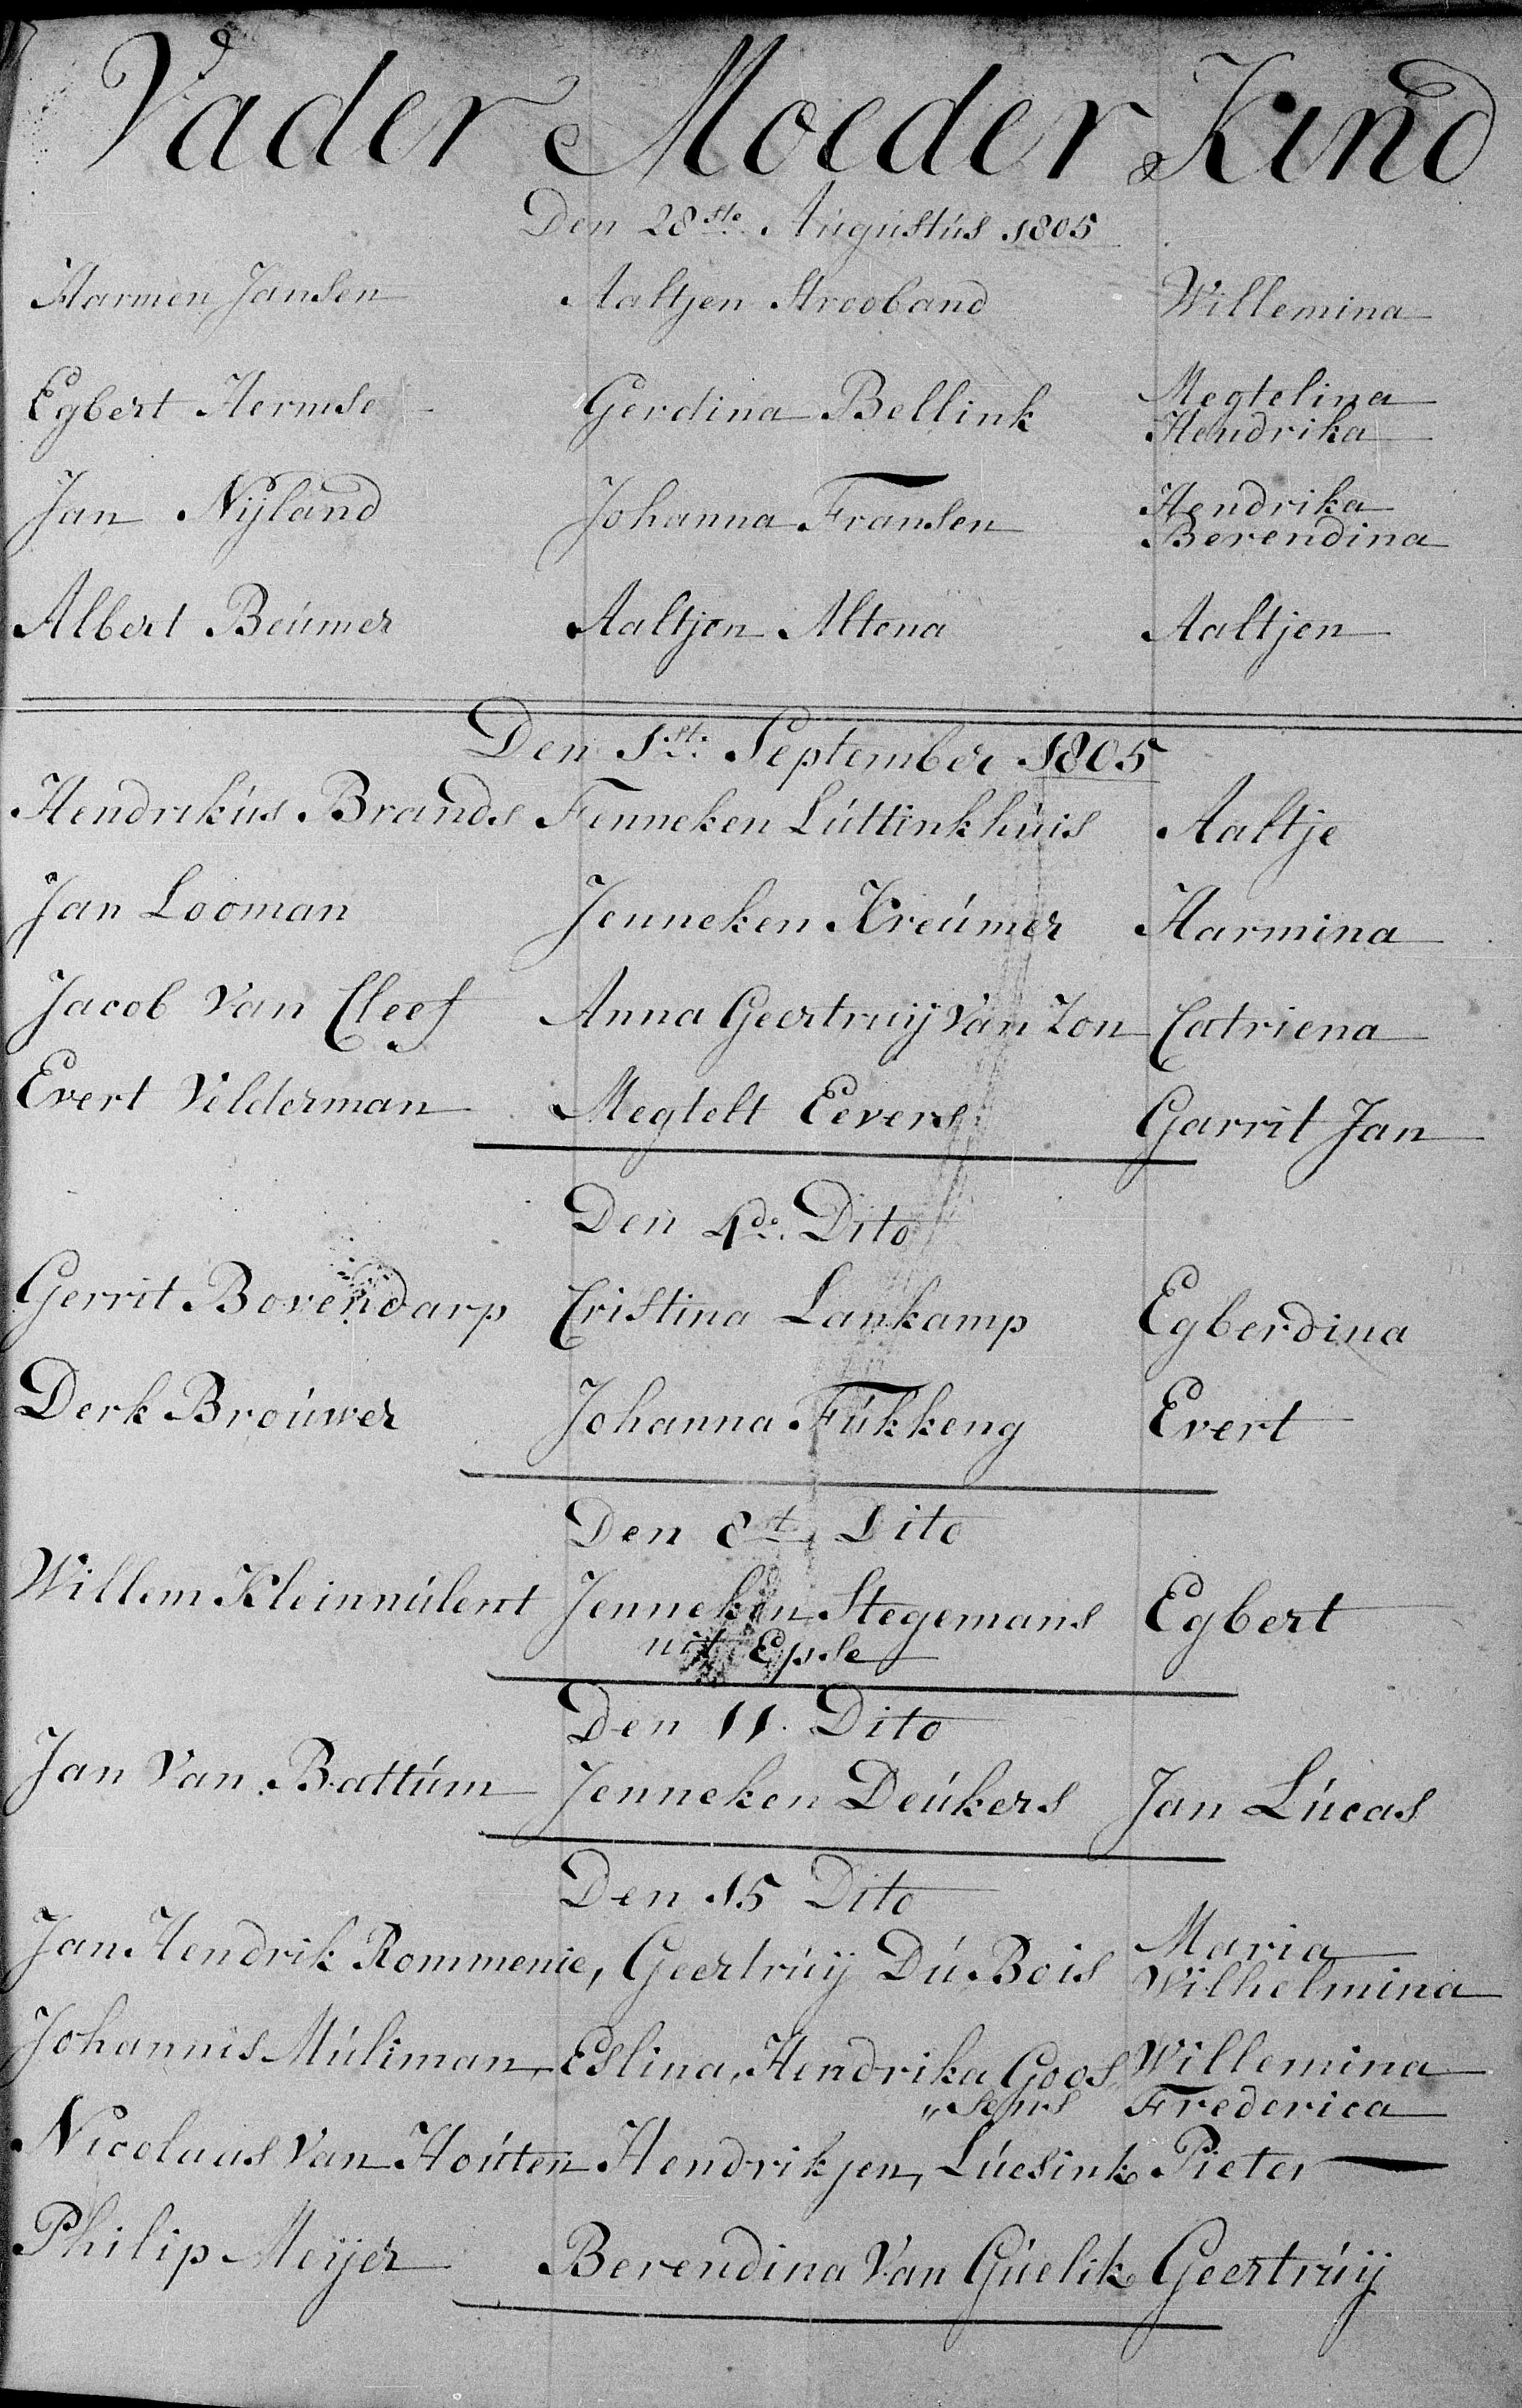 Vader Moeder Kind
Den 28ste Augustus 1805
Harmen Jansen Aaltjen Strooband Willemina
Egbert Hermse Gerdina Bellink Megtelina
Hendrika
Jan Nijland Johanna Fransen Hendrika
Berendina
Albert Beumer Aaltjen Altena Aaltjen
Den 1st. September 1805
Hendrikus Brands Fenneken Luttinkhuis Aaltje
Jan Looman Jenneken Kreumer Harmina
Jacob Van Cleef Anna Geertruij Van Zon Catriena
Evert Velderman Megtelt Eevers Garrit Jan
Den 4de. Dito
Gerrit Bovendarp Cristina Lankamp Egberdina
Derk Brouwer Johanna Fukkeng Evert
Den 8t. Dito
Willem Kleinnulent Jenneken Stegemans Egbert
uit Epse
Den 11. Dito
Jan Van Battum Jenneken Deukers Jan Lucas
Den 15 Dito
Jan Hendrik Rommenie, Geertruij Du Bois Maria
Wilhelmina
Johannis Muliman, Eslina, Hendrika Goos Willemina
„Sens Frederica
Nicolaas Van Houten Hendrikjen, Lucsink Pieter
Philip Meijer Berendina Van Guelik Geertruij